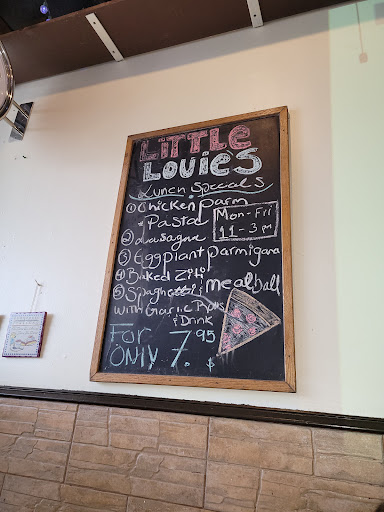 LiTTLE
LOUiES
Lunch Specials
① Chicken parm
+ Pasta
Mon - Fri
11 - 3 PM
② Lasagna
③ Eggplant parmigana
④ Baked Ziti
⑤ Spaghetti & meatball
with Garlic Rolls
& Drink
FOR
ONLY 7.95
$